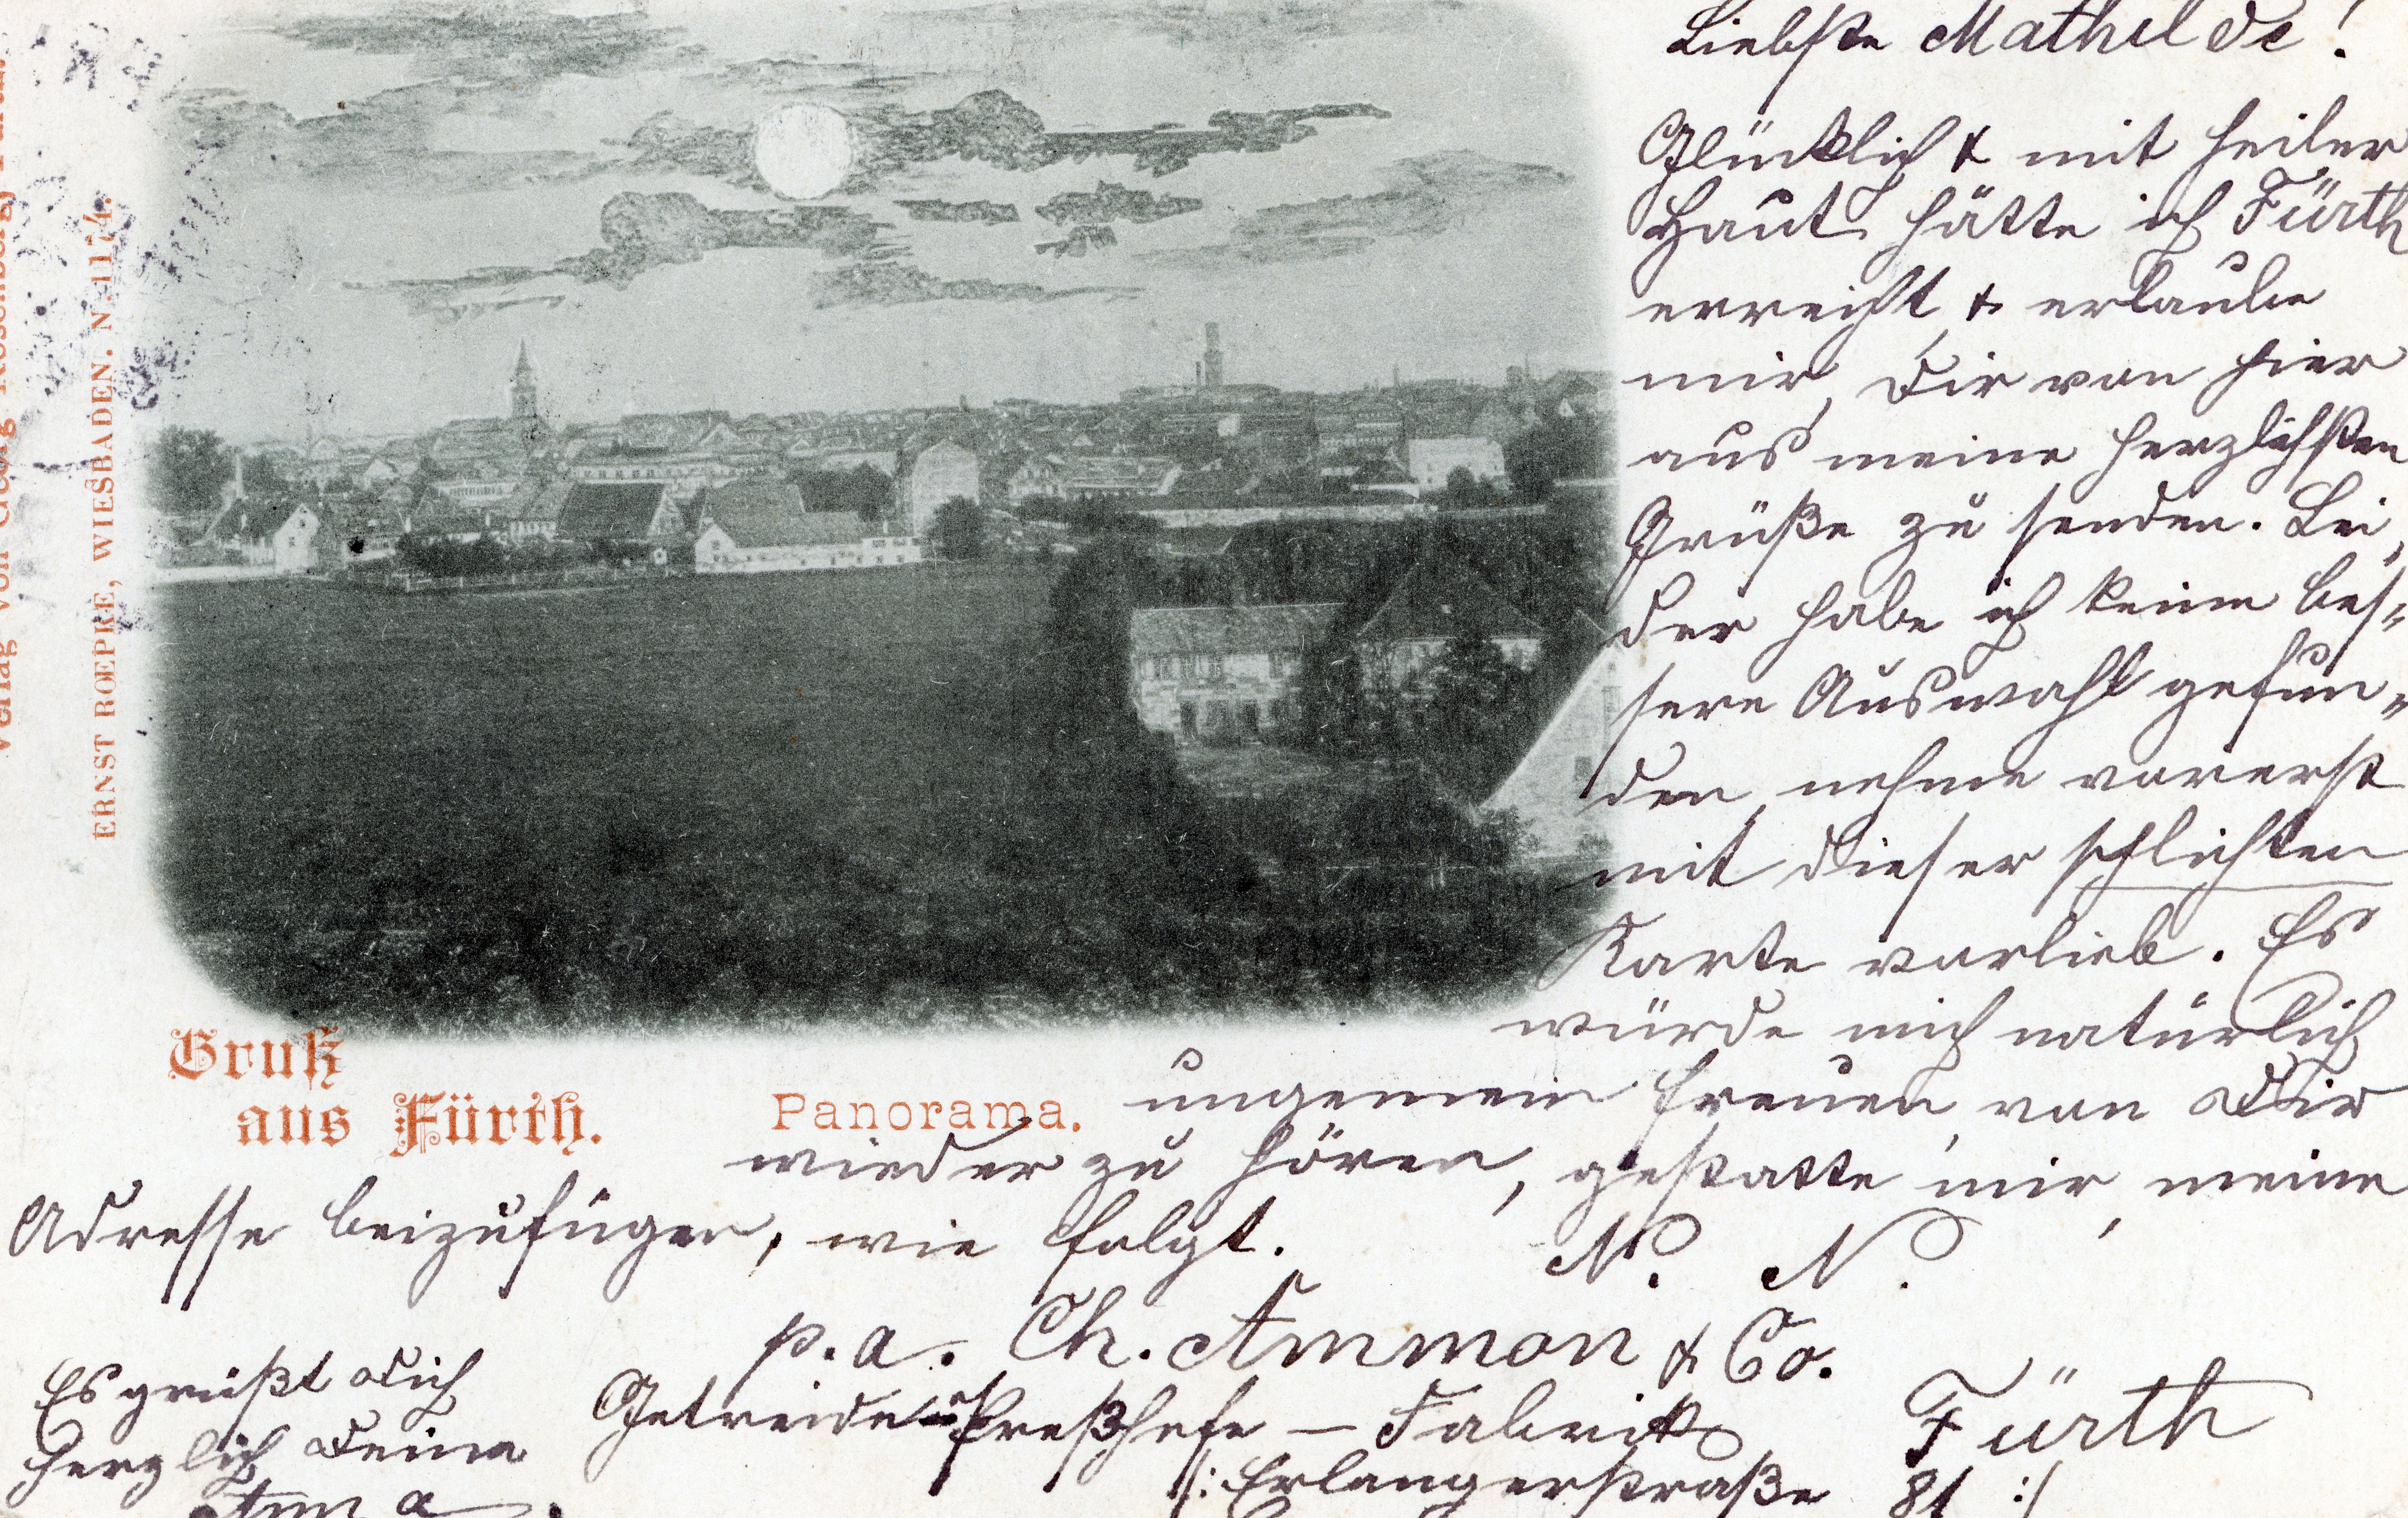 Verlag von Georg Rosenberg, Fürth.
ERNST ROEPKE, WIESBADEN. N. 1174.
Liebste Mathilde!
Glücklich & mit heiler
Haut hätte ich Fürth
erreicht & erlaube
mir, Dir von hier
aus meine herzlichsten
Grüße zu senden. Lei,
der habe ich keine bes-
sere Auswahl gefun-
den, nehme vorerst
mit dieser schlichten
Karte vorlieb. Es
würde mich natürlich
ungemein freuen, von Dir
wieder zu hören, gestatte mir, meine
Adresse beizufügen, wie folgt.
N. N.
p. a. Ch. Ammon & Co.
Getreide-Preßhefe - Fabrik
Fürth
/: Erlangerstraße 81 :/
Es grüßt Dich
herzlich Deine
Anna.
Gruß
aus Fürth.
Panorama.